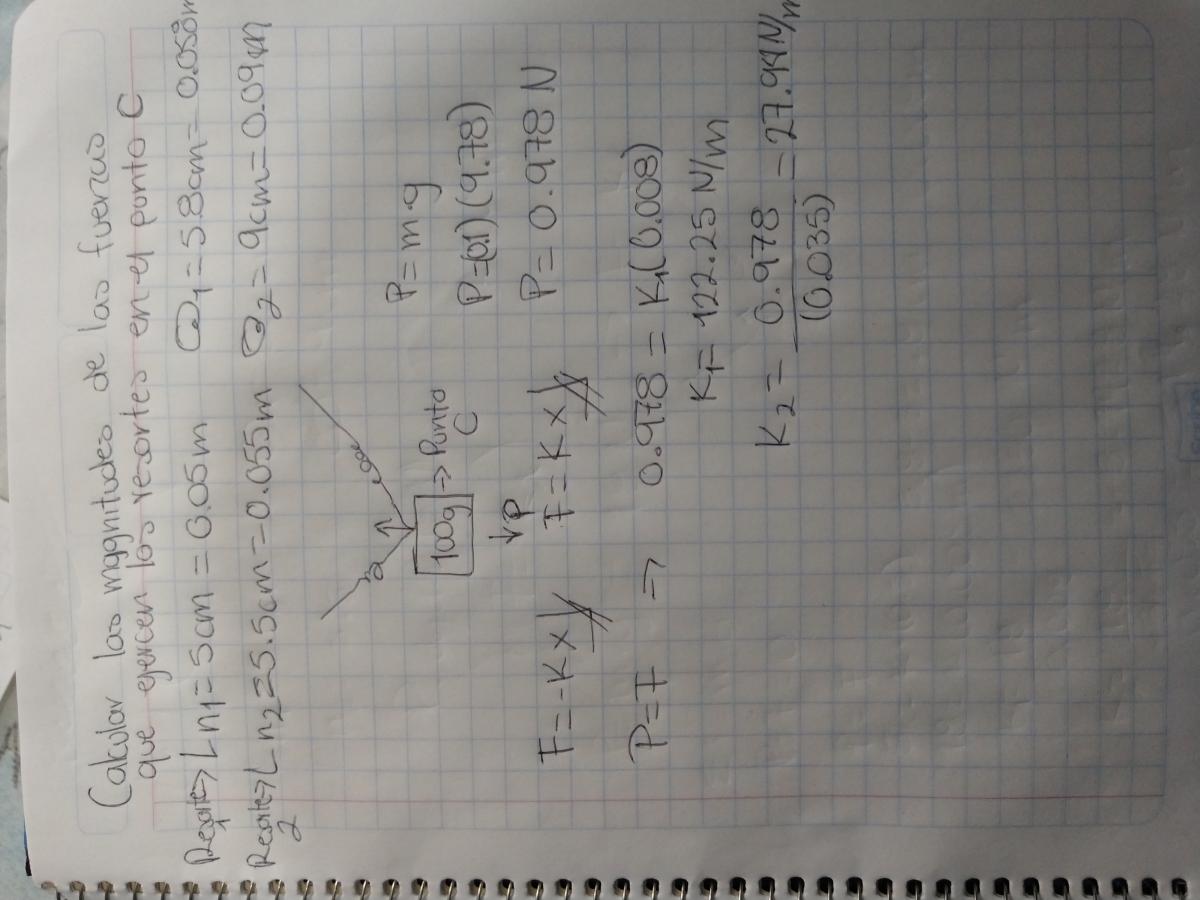 Calcular las magnitudes de las fuerzas
que ejercen los resortes en el punto C
Resorte 1 → Ln1 = 5cm = 0.05m   Q1 = 5.8cm = 0.058m
Resorte 2 → Ln2 = 5.5cm = 0.055m   Q2 = 9cm = 0.09m
100g → Punto C
↓P
P = m g
P = (0.1) (9.78)
P = 0.978 N
F = -Kx   F = Kx
P = F → 0.978 = K1(0.008)
K1 = 122.25 N/m
K2 = 0.978 / (0.035) = 27.94 N/m